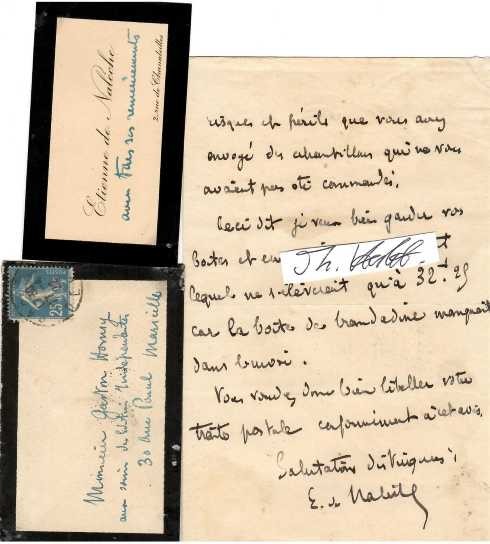 Etienne de Nalèche
avec tous ses remerciements
2 rue de Chanaleilles
25
Monsieur Gaston Homsy
aux soins de Indépendants
30 rue Paul Marseille
risques et périls que vous avez
envoyé des échantillons qui ne vous
avaient pas été commandés.
Ceci dit je veux bien garder vos
boites et en
lequel ne s'élèverait qu'à 32.25
car la boite de brandadine manquait
dans l'envoi.
Vous voudrez donc bien libeller votre
traite postale conformément à cet avis.
Salutations distinguées,
E. de Nalèche